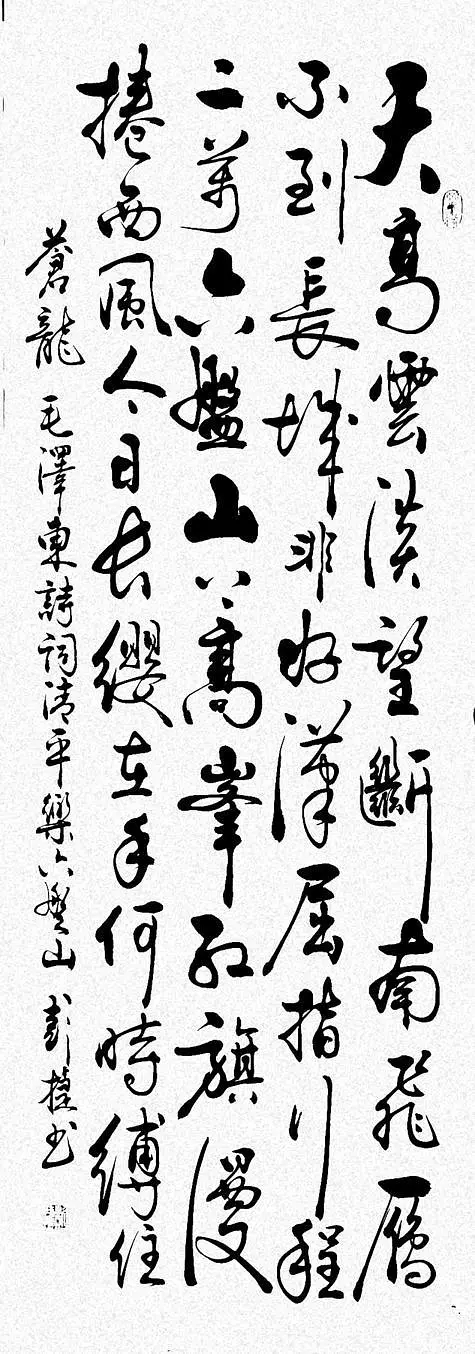 天高雲淡望斷南飛雁
不到長城非好漢屈指行程
二萬六盤山上高峯紅旗漫
捲西風今日長纓在手何時縛住
蒼龍 毛澤東詩詞清平樂六盤山 书